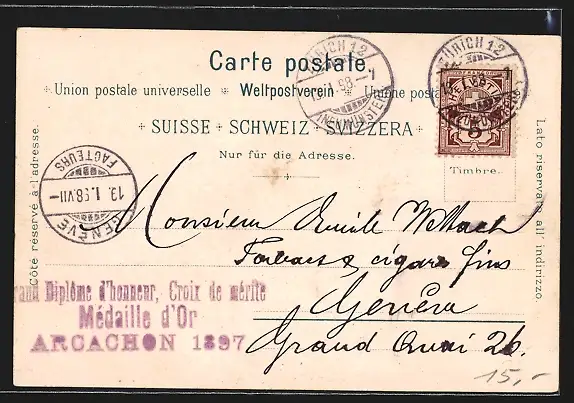 Carte postale
Union postale universelle Weltpostverein Unione posta
SUISSE SCHWEIZ SVIZZERA
Nur für die Adresse.
Côté réservé à l'adresse.
Lato riservato all' indirizzo.
ZÜRICH 12
(NEUMÜNSTER)
ZÜRICH 12
HELVETIA
5
Timbre.
FACTEURS
13.I.98.VII-
GENÈVE
Monsieur Emile
Tabacs & cigares fins
Genève
Grand Quai 26.
rand Diplôme d'honneur, Croix de mérite
Médaille d'Or
ARCACHON 1897
15,-